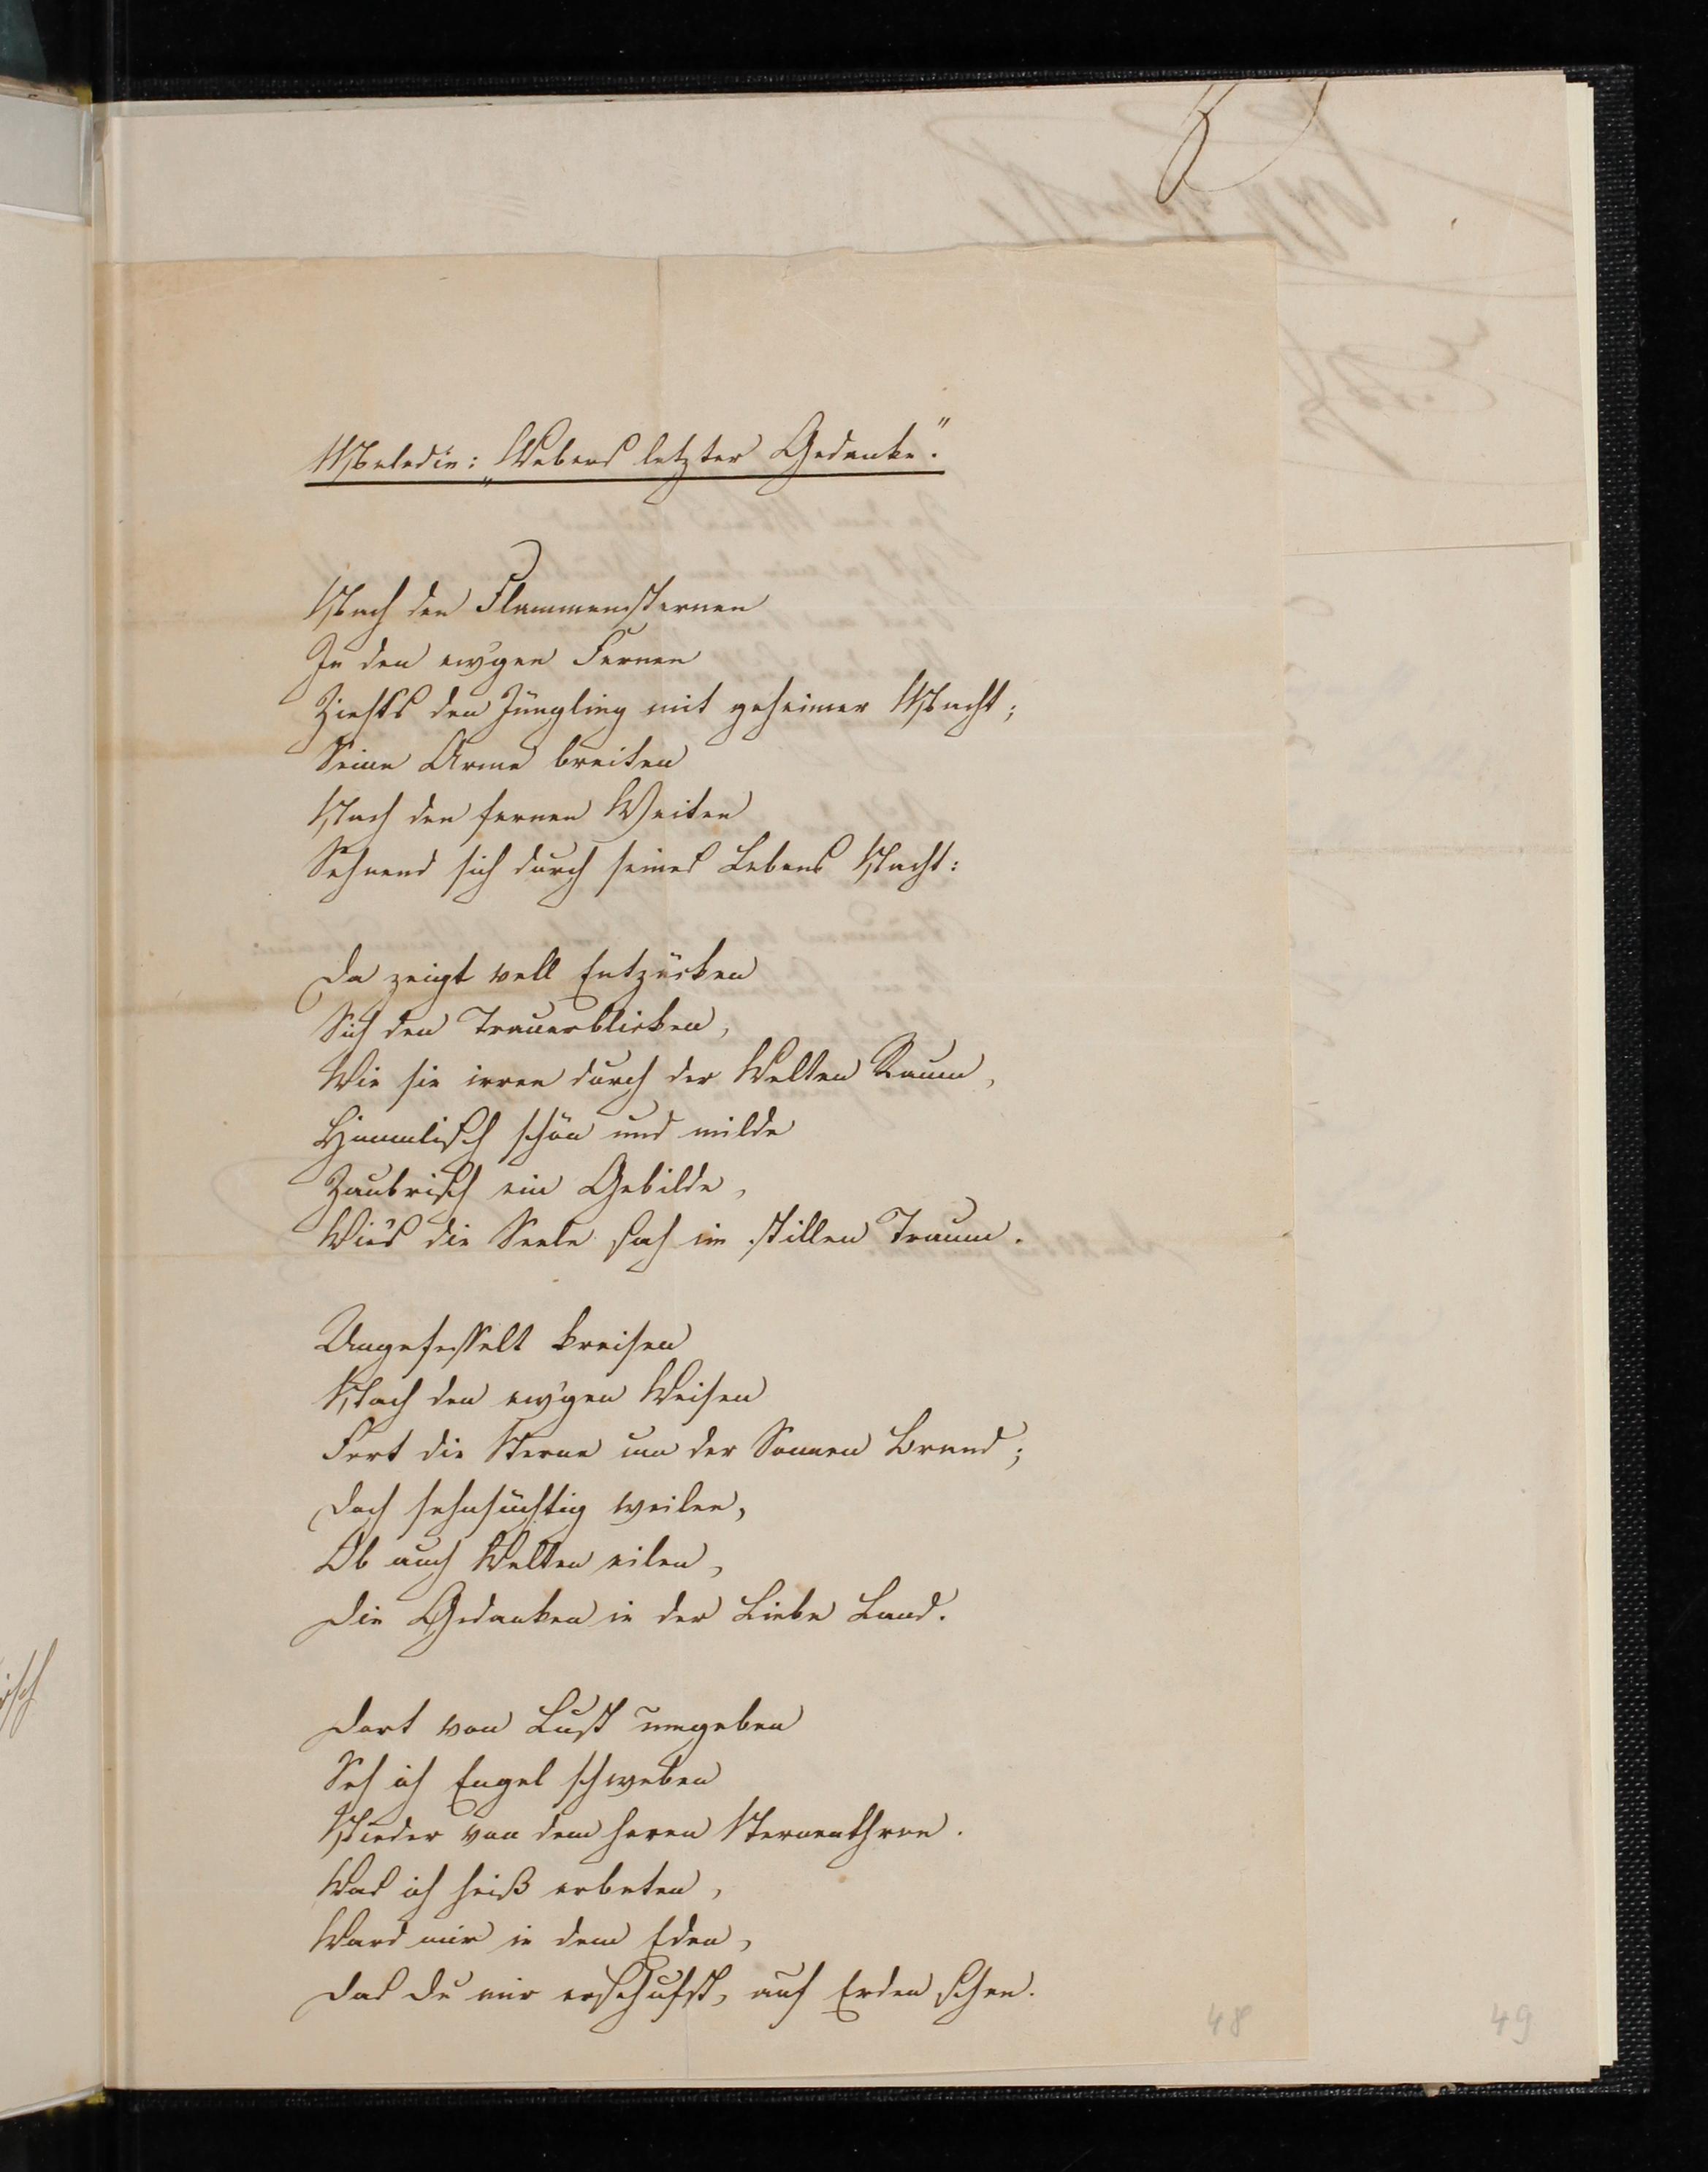 Melodie: „Webers letzter Gedanke."
Nach den Flammensternen
In den ew'gen Fernen
Zieht's den Jüngling mit geheimer Macht;
Seine Arme breiten
Nach den fernen Weiten
Sehnend sich durch seines Lebens Nacht:
Da zeigt voll Entzücken
Sich den Trauerblicken,
Wie sie irren durch der Welten Raum,
Himmlisch schön und milde
Zaubrisch ein Gebilde,
Wie's die Seele sah im stillen Traum.
Ungefesselt kreisen
Nach den ew'gen Weisen
Fort die Sterne um der Sonnen Brand;
Doch sehnsüchtig weilen,
Ob auch Welten eilen,
Die Gedanken in der Liebe Land.
Dort von Lust umgeben
Seh ich Engel schweben
Nieder von dem heren Sternenthron.
Was ich heiß erbeten,
Ward mir in dem Eden,
Das Du mir erschufst, auf Erden schon.
48
49